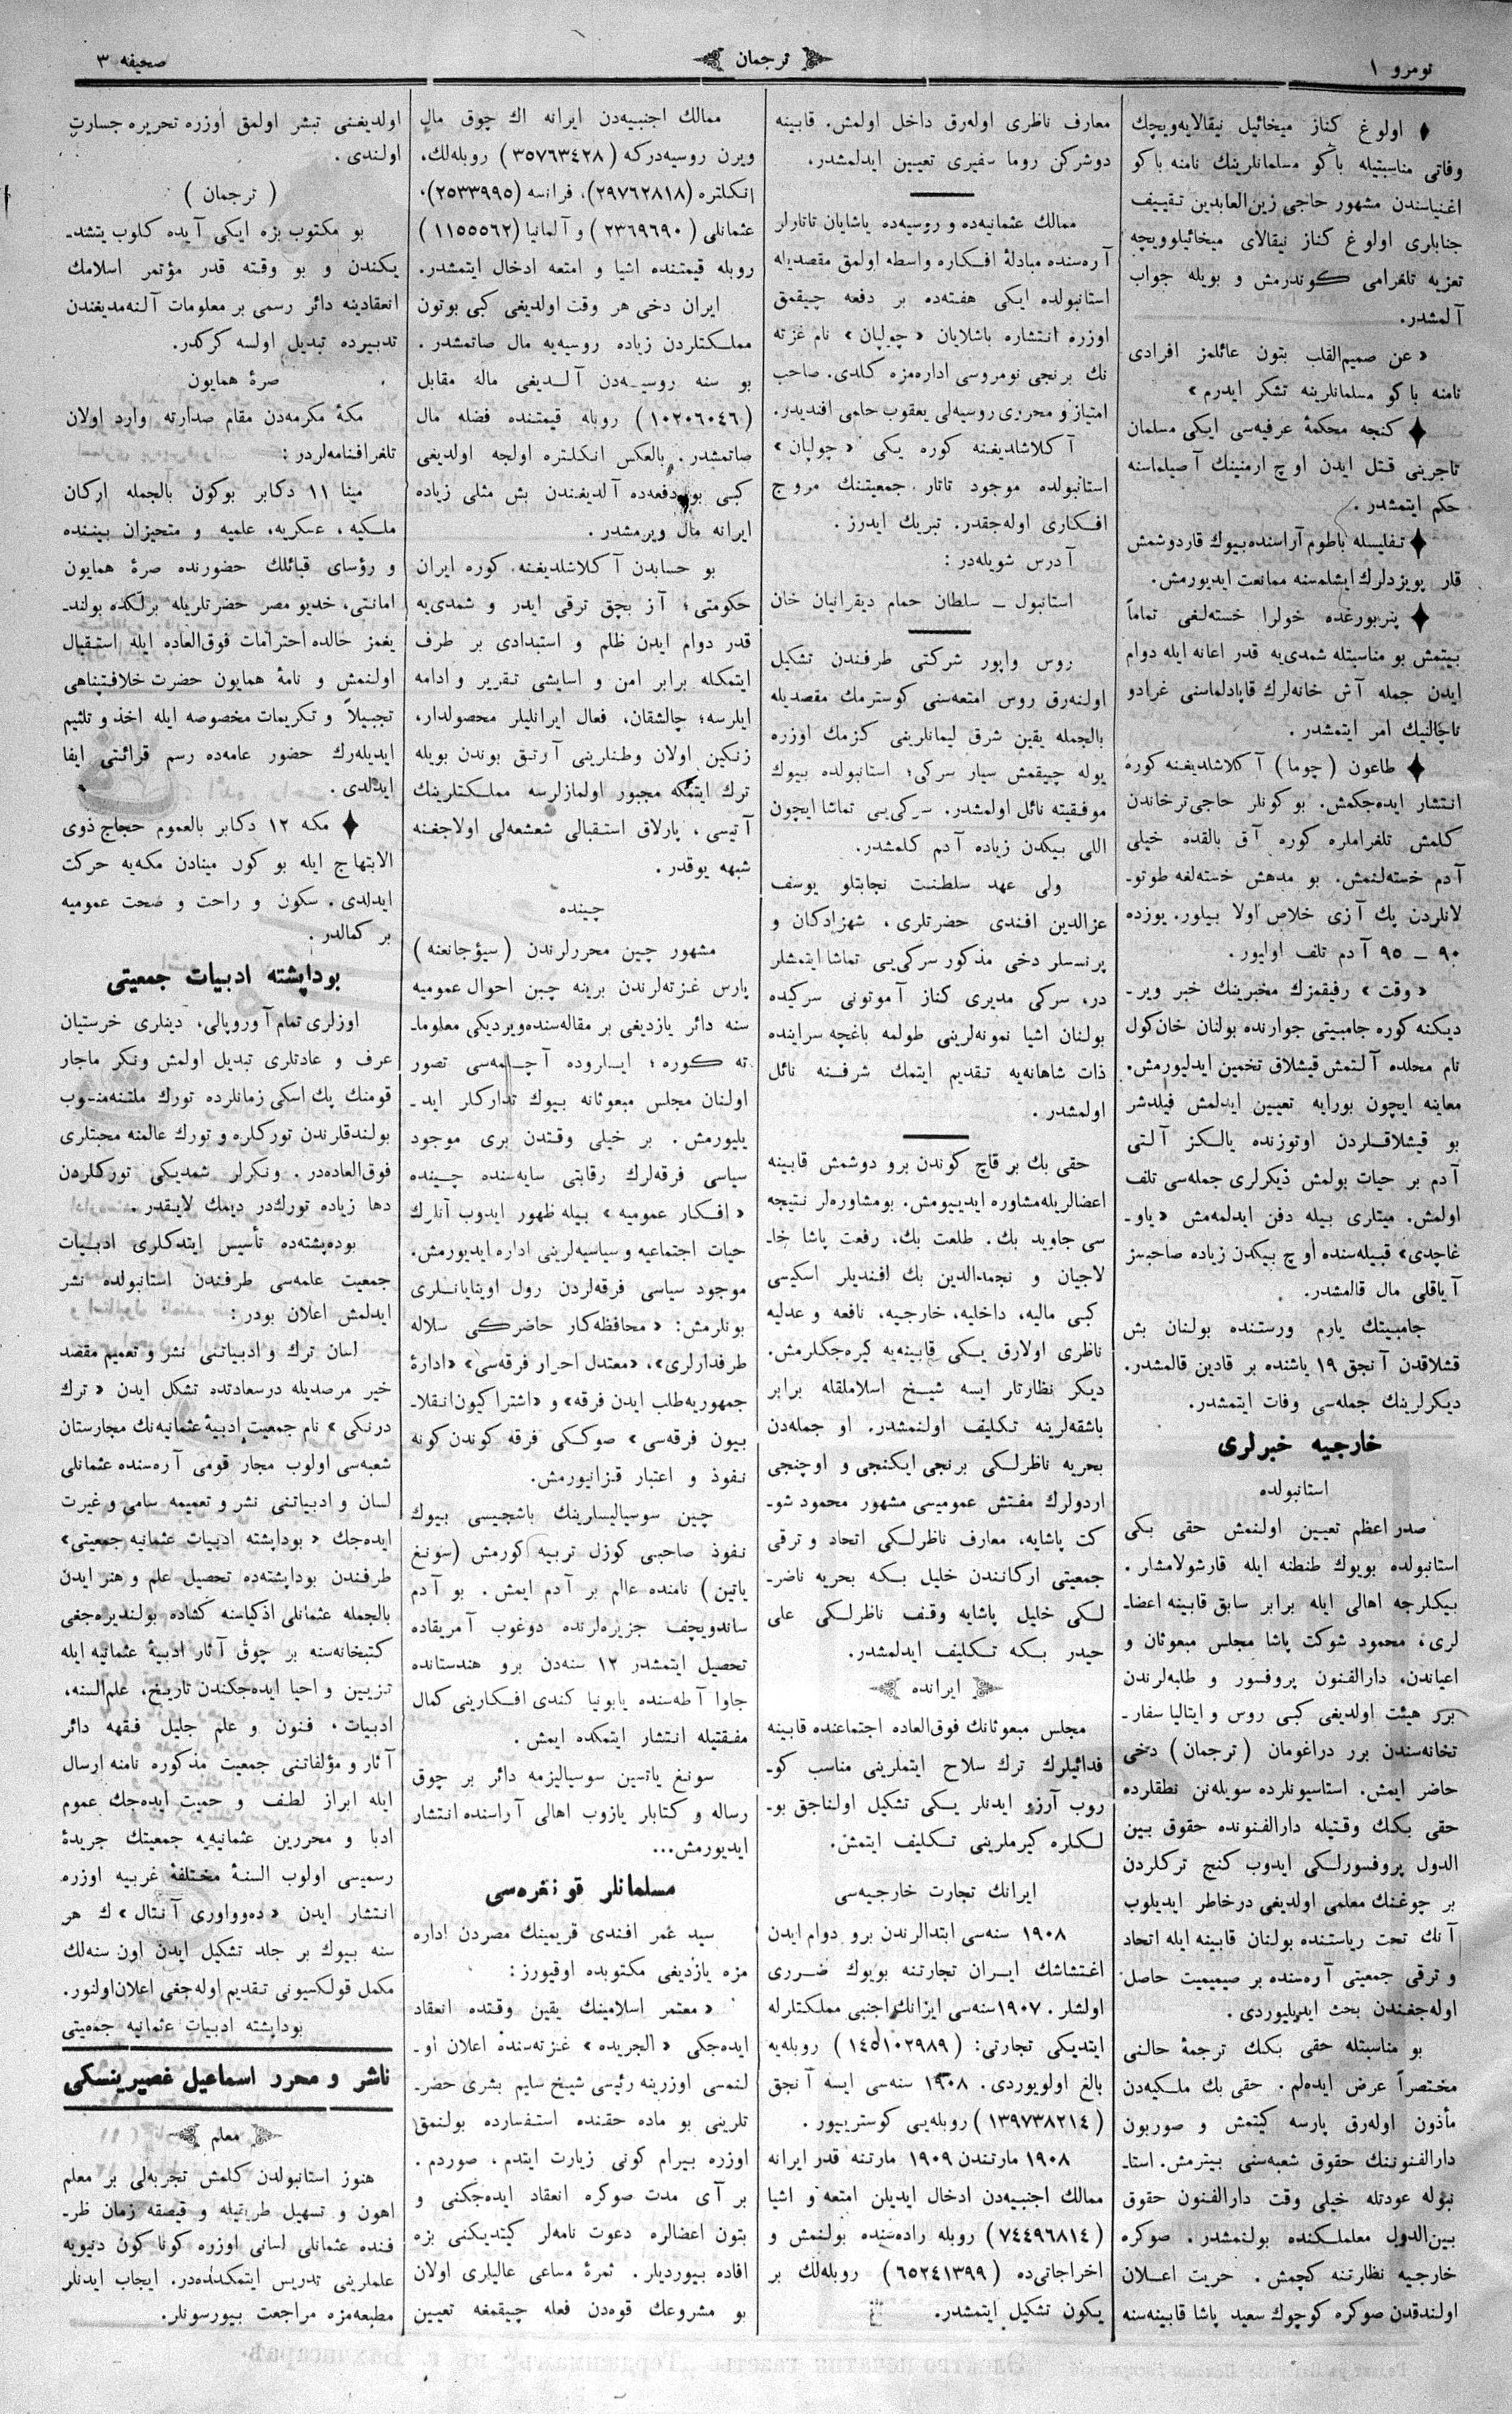 نومرو ١
ترجمان
صحیفه ٣
اولوغ کناز میخائیل نیقالایه‌ویچك
وفاتی مناسبتیله باکو مسلمانلرینك نامنه باکو
اغنیاسندن مشهور حاجی زین‌العابدین تقییف
جنابلری اولوغ کناز نیقالای میخائیلوویچه
تعزیه تلغرامی کوندرمش و بویله جواب
آلمشدر.
« عن صمیم‌القلب بتون عائلمز افرادی
نامنه باکو مسلمانلرینه تشکر ایدرم »
کنجه محکمهٔ عرفیه‌سی ایکی مسلمان
تاجرینی قتل ایدن اوچ ارمنینك آصیلماسنه
حکم ایتمشدر.
تفلیسله باطوم آراسنده بیوك قار دوشمش
قار پویزدلرك ایشلمسنه ممانعت ایدیورمش.
پتربورغده خولرا خسته‌لغی تماماً
بیتمش بو مناسبتله شمدی‌یه قدر اعانه ایله دوام
ایدن جمله آش خانه‌لرك قاپادلماسنی غرادو
ناچالنیك امر ایتمشدر.
طاعون (چوما) آکلاشلدیغنه کوره
انتشار ایده‌جکمش. بو کونلر حاجی‌ترخاندن
کلمش تلغراملره کوره آق بالقده خیلی
آدم خسته‌لنمش. بو مدهش خسته‌لغه طوتو-
لانلردن پك آزی خلاص اولا بیلور. یوزده
٩٠ – ٩٥ آدم تلف اولیور.
« وقت » رفیقمزك مخبرینك خبر ویر-
دیکنه کوره جامبیتی جوارنده بولنان خان‌کول
نام محلده آلتمش قیشلاق تخمین ایدلیورمش.
معاینه ایچون بورایه تعیین ایدلمش فیلدشر
بو قیشلاقلردن اوتوزنده یالکز آلتی
آدم بر حیات بولمش دیکرلری جمله‌سی تلف
اولمش. میتلری بیله دفن ایدلمه‌مش « یاو-
غاچدی» قبیله‌سنده اوچ بیکدن زیاده صاحبسز
آیاقلی مال قالمشدر.
جامبیتك یارم ورستنده بولنان بش
قشلاقدن آنجق ١٩ یاشنده بر قادین قالمشدر.
دیکرلرینك جمله‌سی وفات ایتمشدر.
خارجیه خبرلری
استانبولده
صدر اعظم تعیین اولنمش حقی بکی
استانبولده بویوك طنطنه ایله قارشولامشلر.
بیکلرجه اهالی ایله برابر سابق قابینه اعضا-
لری، محمود شوکت پاشا مجلس مبعوثان و
اعیاندن، دارالفنون پروفسور و طلبه‌لرندن
برر هیئت اولدیغی کبی روس و ایتالیا سفار-
تخانه‌سندن برر دراغومان (ترجمان) دخی
حاضر ایمش. استاسیونلرده سویله‌نن نطقلرده
حقی بکك وقتیله دارالفنونده حقوق بین
الدول پروفسورلکی ایدوب کنج ترکلردن
بر چوغنك معلمی اولدیغی درخاطر ایدیلوب
آنك تحت ریاستنده بولنان قابینه ایله اتحاد
و ترقی جمعیتی آره‌سنده بر صمیمیت حاصل
اوله‌جغندن بحث ایدیلیوردی.
بو مناسبتله حقی بکك ترجمهٔ حالنی
مختصراً عرض ایده‌لم. حقی بك ملکیه‌دن
مأذون اوله‌رق پارسه کیتمش و صوربون
دارالفنوننك حقوق شعبه‌سنی بیترمش. استا-
نبوله عودتله خیلی وقت دارالفنون حقوق
بین‌الدول معلملکنده بولنمشدر. صوکره
خارجیه نظارتنه کچمش. حریت اعلان
اولندقدن صوکره کوچوك سعید پاشا قابینه‌سنه
معارف ناظری اوله‌رق داخل اولمش. قابینه
دوشرکن روما سفیری تعیین ایدلمشدر.
ممالك عثمانیه‌ده و روسیه‌ده یاشایان تاتارلر
آره‌سنده مبادلهٔ افکاره واسطه اولمق مقصدیله
استانبولده ایکی هفته‌ده بر دفعه چیقمق
اوزره انتشاره باشلایان « چولپان » نام غزته
نك برنجی نومروسی اداره‌مزه کلدی. صاحب
امتیاز و محرری روسیه‌لی یعقوب حلمی افندیدر.
آکلاشلدیغنه کوره یکی « چولپان »
استانبولده موجود تاتار جمعیتنك مروج
افکاری اوله‌جقدر. تبریك ایدرز.
آدرس شویله‌در:
استانبول – سلطان حمام دیقرانیان خان
روس واپور شرکتی طرفندن تشکیل
اولنه‌رق روس امتعه‌سنی کوسترمك مقصدیله
بالجمله یقین شرق لیمانلرینی کزمك اوزره
یوله چیقمش سیار سرکی؛ استانبولده بیوك
موفقیته نائل اولمشدر. سرکی‌یی تماشا ایچون
اللی بیکدن زیاده آدم کلمشدر.
ولی عهد سلطنت نجابتلو یوسف
عزالدین افندی حضرتلری، شهزادکان و
پرنسسلر دخی مذکور سرکی‌یی تماشا ایتمشلر
در، سرکی مدیری کناز آموتونی سرکیده
بولنان اشیا نمونه‌لرینی طولمه باغچه سراینده
ذات شاهانه‌یه تقدیم ایتمك شرفنه نائل
اولمشدر.
حقی بك بر قاچ کوندن برو دوشمش قابینه
اعضالریله مشاوره ایدییومش. بومشاوره‌لر نتیجه
سی جاوید بك. طلعت بك، رفعت پاشا خا-
لاجیان و نجم‌الدین بك افندیلر اسکیسی
کبی مالیه، داخلیه، خارجیه، نافعه و عدلیه
ناظری اولارق یکی قابینه‌یه کیره‌جکلرمش.
دیکر نظارتلر ایسه شیخ اسلاملقله برابر
باشقه‌لرینه تکلیف اولنمشدر. او جمله‌دن
بحریه ناظرلکی برنجی ایکنجی و اوچنجی
اردولرك مفتش عمومیسی مشهور محمود شو-
کت پاشایه، معارف ناظرلکی اتحاد و ترقی
جمعیتی ارکانندن خلیل بکه بحریه ناضر-
لکی خلیل پاشایه وقف ناظرلکی علی
حیدر بکه تکلیف ایدلمشدر.
ایرانده
مجلس مبعوثانك فوق‌العاده اجتماعنده قابینه
فدائیلرك ترك سلاح ایتملرینی مناسب کو-
روب آرزو ایدنلر یکی تشکیل اولناجق بو-
لکلره کیرملرینی تکلیف ایتمش.
ایرانك تجارت خارجیه‌سی
١٩٠٨ سنه‌سی ابتدالرندن برو دوام ایدن
اغتشاشك ایران تجارتنه بویوك ضرری
اولشلر. ١٩٠٧ سنه‌سی ایرانك اجنبی مملکتلرله
ایتدیکی تجارتی: (١٤٥١٠٢٩٨٩) روبله‌یه
بالغ اولویوردی. ١٩٠٨ سنه‌سی ایسه آنجق
(١٣٩٧٣٨٢١٤) روبله‌یی کوستریبور.
١٩٠٨ مارتندن ١٩٠٩ مارتنه قدر ایرانه
ممالك اجنبیه‌دن ادخال ایدیلن امتعه و اشیا
(٧٤٤٩٦٨١٤) روبله راده‌سنده بولنمش و
اخراجاتی‌ده (٦٥٢٤١٣٩٩) روبله‌لك بر
یکون تشکیل ایتمشدر.
ممالك اجنبیه‌دن ایرانه اك چوق مال
ویرن روسیه‌درکه (٣٥٧٦٣٤٢٨) روبله‌لك،
انکلتره (٢٩٧٦٢٨١٨)، فرانسه (٢٥٣٣٩٩٥)،
عثمانلی (٢٣٦٩٦٩٠) و آلمانیا (١١٥٥٥٦٢)
روبله قیمتنده اشیا و امتعه ادخال ایتمشدر.
ایران دخی هر وقت اولدیغی کبی بوتون
مملکتلردن زیاده روسیه‌یه مال صاتمشدر.
بو سنه روسیه‌دن آلدیغی ماله مقابل
(١٠٢٠٦٠٤٦) روبله قیمتنده فضله مال
صاتمشدر. بالعکس انکلتره اولجه اولدیغی
کبی بو دفعه‌ده آلدیغندن بش مثلی زیاده
ایرانه مال ویرمشدر.
بو حسابدن آکلاشلدیغنه کوره ایران
حکومتی؛ آز بچق ترقی ایدر و شمدی‌یه
قدر دوام ایدن ظلم و استبدادی بر طرف
ایتمکله برابر امن و اسایشی تقریر و ادامه
ایلرسه؛ چالشقان، فعال ایرانلیلر محصولدار،
زنکین اولان وطنلرینی آرتق بوندن بویله
ترك ایتمکه مجبور اولمازلرسه مملکتلرینك
آتیسی، پارلاق استقبالی شعشعه‌لی اولاجغنه
شبهه یوقدر.
چینده
مشهور چین محررلرندن (سیؤجانغنه)
پارس غزته‌لرندن برینه چین احوال عمومیه
سنه دائر یازدیغی بر مقاله‌سنده ویردیکی معلوما-
ته کوره؛ ایلروده آچلمه‌سی تصور
اولنان مجلس مبعوثانه بیوك تدارکلر اید-
یلیورمش. بر خیلی وقتدن بری موجود
سیاسی فرقه‌لرك رقابتی سایه‌سنده چینده
« افکار عمومیه » بیله ظهور ایدوب آنلرك
حیات اجتماعیه و سیاسیه‌لرینی اداره ایدیورمش.
موجود سیاسی فرقه‌لردن رول اوینایانلری
بونلرمش: « محافظه‌کار حاضرکی سلاله
طرفدارلری»، «معتدل احرار فرقه‌سی» «ادارهٔ
جمهوریه‌طلب ایدن فرقه» و «اشتراکیون‌انقلا-
بیون فرقه‌سی» صوککی فرقه کوندن کونه
نفوذ و اعتبار قزانیورمش.
چین سوسیالیسلرینك باشجیسی بیوك
نفوذ صاحبی کوزل تربیه کورمش (سونغ
یاتین) نامنده عالم بر آدم ایمش. بو آدم
ساندویچف جزیره‌لرنده دوغوب آمریقاده
تحصیل ایتمشدر ١٢ سنه‌دن برو هندستانده
جاوا آطه‌سنده یابونیا کندی افکارینی کمال
مفقتیله انتشار ایتمکده ایمش.
سونغ یاتسین سوسیالیزمه دائر بر چوق
رساله و کتابلر یازوب اهالی آراسنده انتشار
ایدیورمش...
مسلمانلر قونغره‌سی
سید عمر افندی قریمینك مصردن اداره
مزه یازدیغی مکتوبده اوقیورز:
« معتمر اسلامینك یقین وقتده انعقاد
ایده‌جکی « الجریده » غزته‌سنده اعلان او-
لنمسی اوزرینه رئیسی شیخ سلیم بشری حضر-
تلرینی بو ماده حقنده استفسارده بولنمق
اوزره بیرام کونی زیارت ایتدم، صوردم.
بر آی مدت صوکره انعقاد ایده‌جکنی و
بتون اعضالره دعوت نامه‌لر کیتدیکنی بزه
افاده بیوردیلر. ثمرهٔ مساعی عالیلری اولان
بو مشروعك قوه‌دن فعله چیقمغه تعیین
اولدیغنی تبشر اولمق اوزره تحریره جسارت
اولندی.
( ترجمان )
بو مکتوب بزه ایکی آیده کلوب یتشد-
یکندن و بو وقته قدر مؤتمر اسلامك
انعقادینه دائر رسمی بر معلومات آلنه‌مدیغندن
تدبیرده تبدیل اولسه کرکدر.
صرهٔ همایون
مکهٔ مکرمه‌دن مقام صدارته وارد اولان
تلغرافنامه‌لردر:
مینا ١١ دکابر بوکون بالجمله ارکان
ملکیه، عسکریه، علمیه و متحیزان بیننده
و رؤسای قبائلك حضورنده صرهٔ همایون
امانتی، خدیو مصر حضرتلریله برلکده بولند-
یغمز حالده احترامات فوق‌العاده ایله استقبال
اولنمش و نامهٔ همایون حضرت خلافتپناهی
تجبیلاً و تکریمات مخصوصه ایله اخذ و تلثیم
ایدیله‌رك حضور عامه‌ده رسم قرائتی ایفا
ایدلدی.
مکه ١٢ دکابر بالعموم حجاج ذوی
الابتهاج ایله بو کون مینادن مکه‌یه حرکت
ایدلدی. سکون و راحت و صحت عمومیه
بر کمالدر.
بوداپشته ادبیات جمعیتی
اوزلری تمام آوروپالی، دینلری خرستیان
عرف و عادتلری تبدیل اولمش ونکر ماجار
قومنك پك اسکی زمانلرده تورك ملتنه‌منسوب
بولندقلرندن تورکلره و تورك عالمنه محبتلری
فوق‌العاده‌در. ونکرلر شمدیکی تورکلردن
دها زیاده تورك‌در دیمك لایقدر.
بوده‌پشته‌ده تأسیس ایتدکلری ادبیات
جمعیت علمه‌سی طرفندن استانبولده نشر
ایدلمش اعلان بودر:
لسان ترك و ادبیاتنی نشر و تعمیم مقصد
خیر مرصدیله درسعادتده تشکل ایدن « ترك
درنکی » نام جمعیت ادبیهٔ عثمانیه‌نك مجارستان
شعبه‌سی اولوب مجار قومی آره‌سنده عثمانلی
لسان و ادبیاتنی نشر و تعمیمه سامی و غیرت
ایده‌جك « بوداپشته ادبیات عثمانیه جمعیتی»
طرفندن بوداپشته‌ده تحصیل علم و هنر ایدن
بالجمله عثمانلی اذکیاسنه کشاده بولندیره‌جغی
کتبخانه‌سنه بر چوق آثار ادبیهٔ عثمانیه ایله
تزیین و احیا ایده‌جکندن تاریخ، علم‌السنه،
ادبیات، فنون و علم جلیل فقهه دائر
آثار و مؤلفاتنی جمعیت مذکوره نامنه ارسال
ایله ابراز لطف و حمیت ایده‌جك عموم
ادبا و محررین عثمانیه‌یه جمعیتك جریدهٔ
رسمیسی اولوب السنهٔ مختلفهٔ غربیه اوزره
انتشار ایدن « ده‌وواوری آنتال » ك هر
سنه بیوك بر جلد تشکیل ایدن اون سنه‌لك
مکمل قولکسیونی تقدیم اوله‌جغی اعلان‌اولنور.
بوداپشته ادبیات عثمانیه جمعیتی
ناشر و محرر اسماعیل غصپرینسکی
معلم
هنوز استانبولدن کلمش تجربه‌لی بر معلم
اهون و تسهیل طریقیله و قیصقه زمان ظر-
فنده عثمانلی لسانی اوزره کوناکون دنیویه
علملرینی تدریس ایتمکده‌در. ایجاب ایدنلر
مطبعه‌مزه مراجعت بیورسونلر.